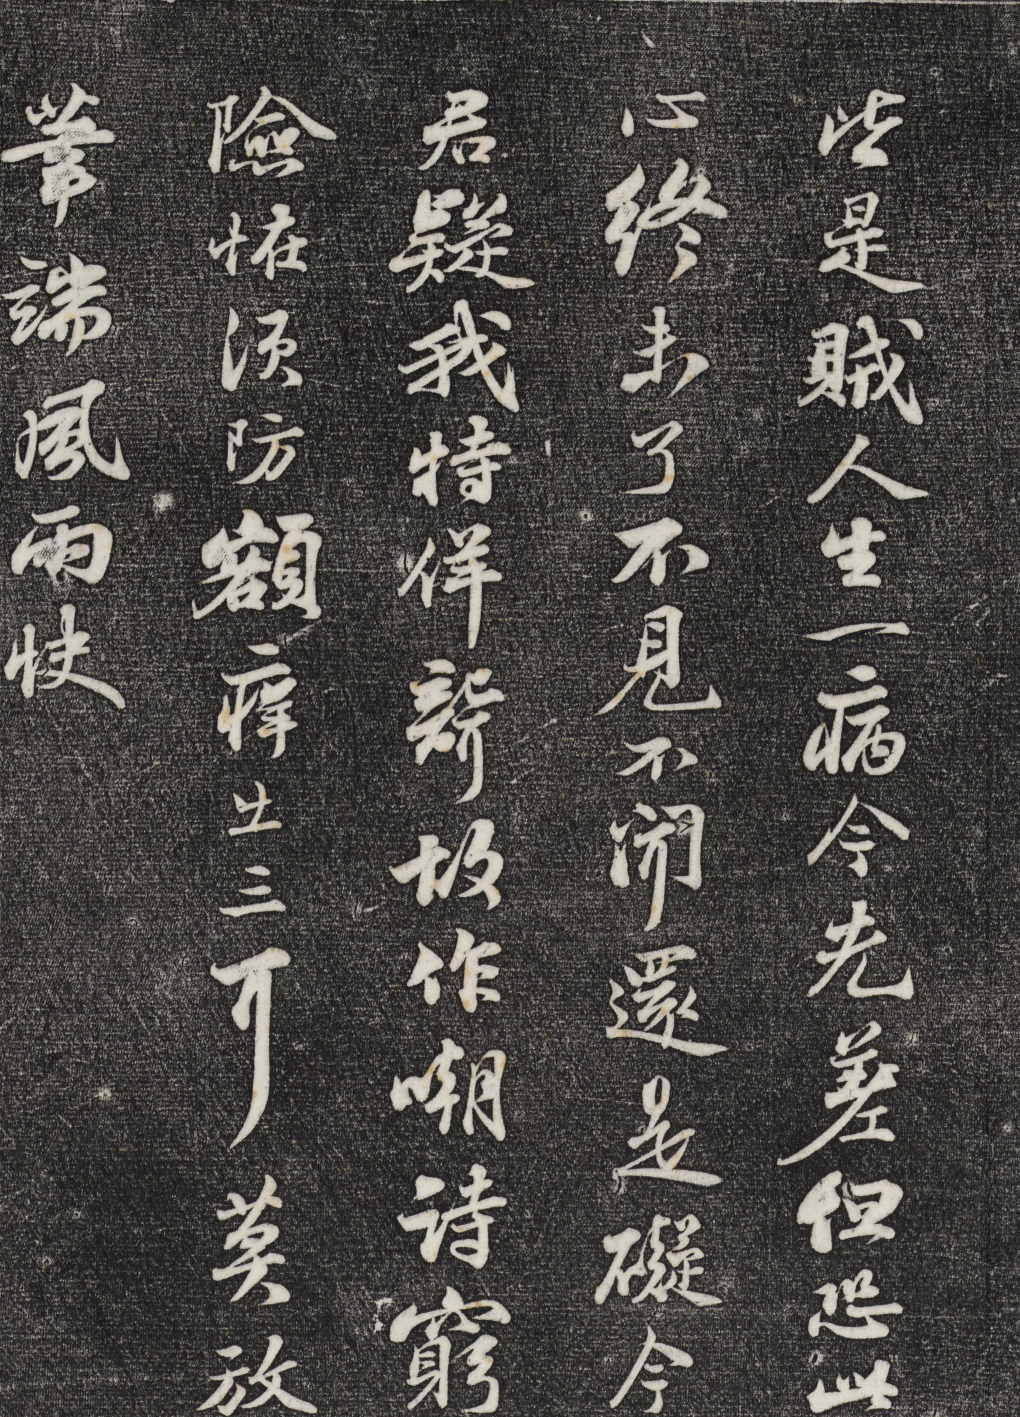 些是賊人生一病今先差但恐此
心終未了不見不聞還是礙今
君疑我特佯聾故作嘲詩窮
險怪須防額痒出三耳莫放
筆端風雨快